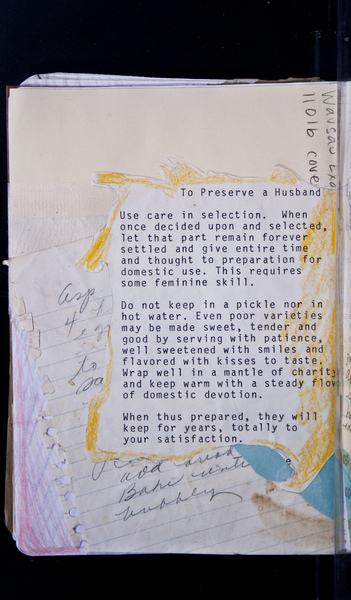 Wausau Exa
110lb cover
To Preserve a Husband
Use care in selection. When
once decided upon and selected,
let that part remain forever
settled and give entire time
and thought to preparation for
domestic use. This requires
some feminine skill.
Do not keep in a pickle nor in
hot water. Even poor varieties
may be made sweet, tender and
good by serving with patience,
well sweetened with smiles and
flavored with kisses to taste.
Wrap well in a mantle of charity
and keep warm with a steady flow
of domestic devotion.
When thus prepared, they will
keep for years, totally to
your satisfaction.
asp
4
to
add
Bake until
bubbley